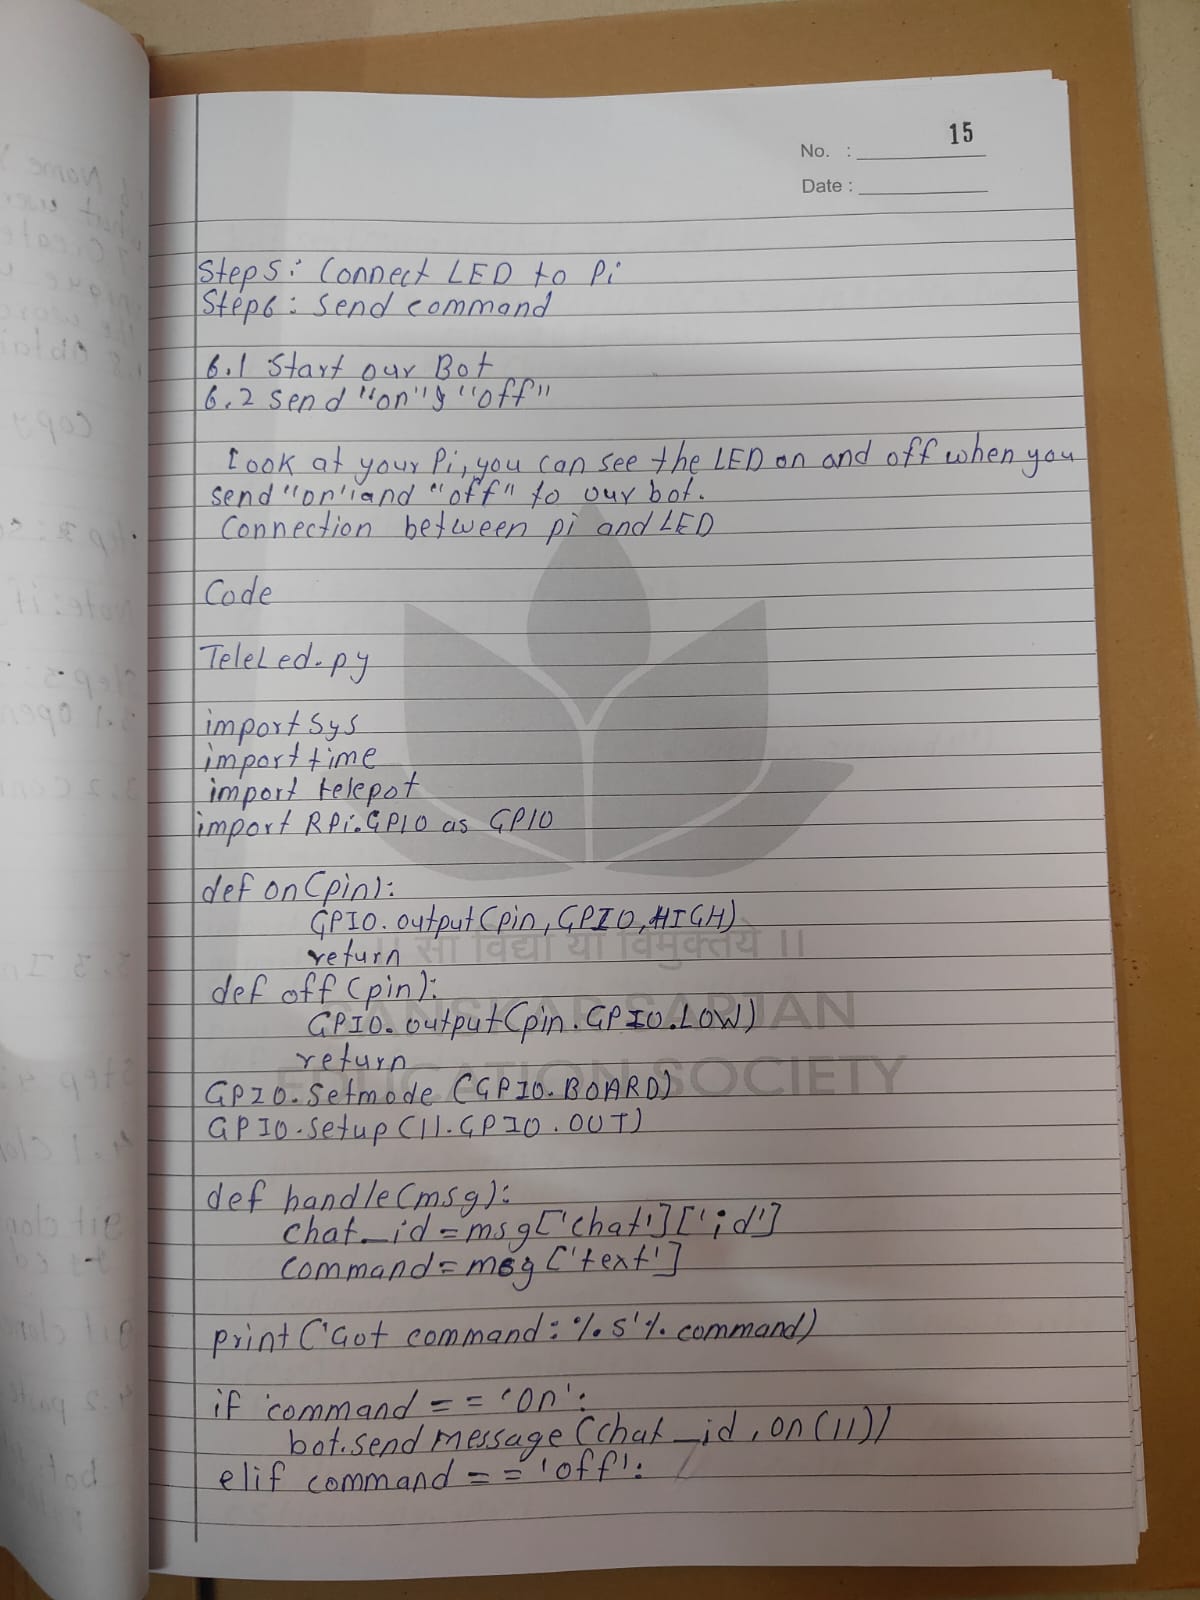 No. : 15
Date :
Step5: Connect LED to Pi
Step6: Send command
6.1 Start our Bot
6.2 Send "on" & "off"
Look at your Pi, you can see the LED on and off when you
send "on" and "off" to our bot.
Connection between pi and LED
Code
TeleLed.py
import sys
import time
import telepot
import RPi.GPIO as GPIO
def on(pin):
GPIO.output(pin, GPIO,HIGH)
return
।। सा विद्या या विमुक्तये ।।
def off(pin):
SANSKAR SARJAN
GPIO.output(pin.GPIO.LOW)
return
EDUCATION SOCIETY
GPIO.Setmode (GPIO.BOARD)
GPIO.setup(11.GPIO.OUT)
def handle(msg):
chat_id=msg['chat']['id']
command=msg['text']
print('Got command: %s'% command)
if command == 'on':
bot.send message (chat_id, on(11))
elif command == 'off':